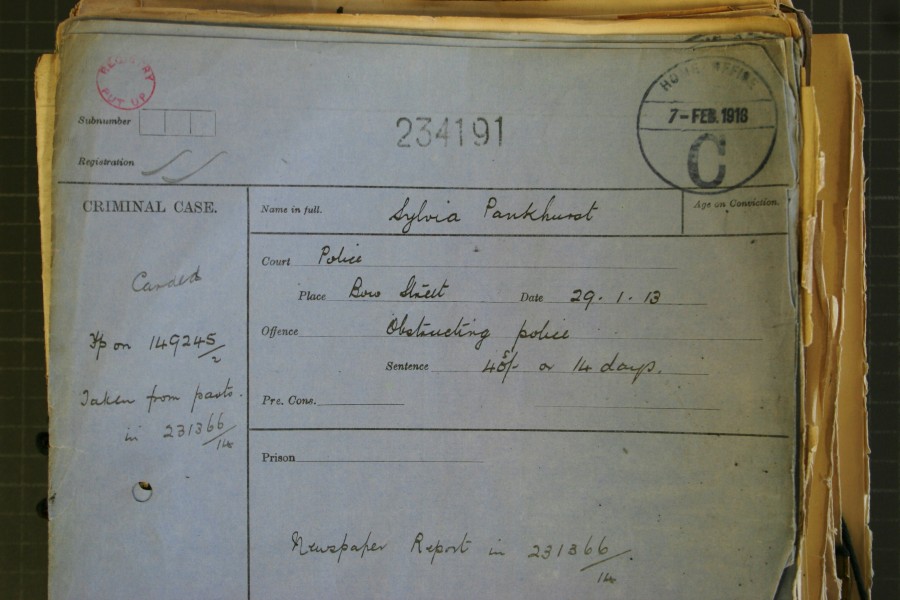 REGISTRY
PUT UP
Subnumber
Registration
234191
HOME OFFICE
7-FEB.1913
C
CRIMINAL CASE.
Name in full. Sylvia Pankhurst
Age on Conviction.
Court Police
Place Bow Street Date 29.1.13
Offence Obstructing police
Sentence 40s/- or 14 days.
Pre. Cons.
Prison
Carded
on 149245/2
Taken from parts.
in 231366/14
Newspaper Report in 231366/14.